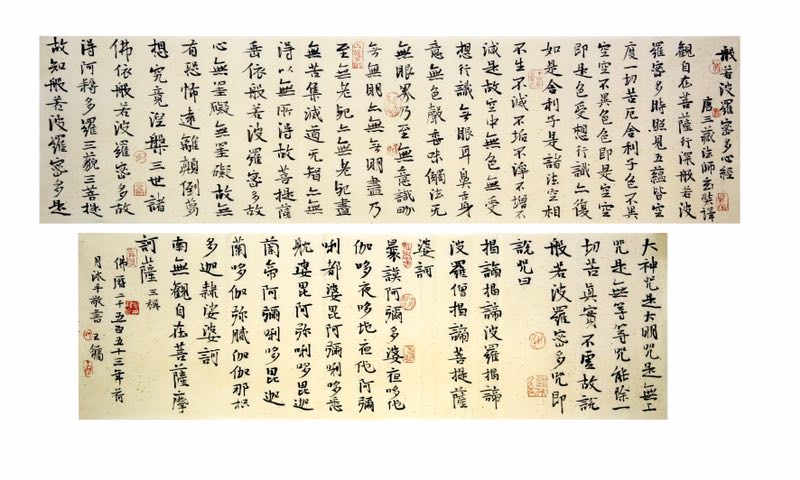 般若波羅蜜多心經
唐三藏法師玄奘譯
觀自在菩薩行深般若波
羅蜜多時照見五蘊皆空
度一切苦厄舍利子色不異
空空不異色色即是空空
即是色受想行識亦復
如是舍利子是諸法空相
不生不滅不垢不淨不增不
滅是故空中無色無受
想行識無眼耳鼻舌身
意無色聲香味觸法无
無眼界乃至無意識界
無無明亦無無明盡乃
至無老死亦無老死盡
無苦集滅道无智亦無
得以無所得故菩提薩
埵依般若波羅蜜多故
心無罣礙無罣礙故無
有恐怖遠離顛倒夢
想究竟涅槃三世諸
佛依般若波羅蜜多故
得阿耨多羅三藐三菩提
故知般若波羅蜜多是
大神咒是大明咒是無上
咒是無等等咒能除一
切苦真實不虛故說
般若波羅蜜多咒即
說咒曰
揭諦揭諦波羅揭諦
波羅僧揭諦菩提薩
婆訶
曩謨阿彌多婆夜哆他
伽哆夜哆地夜他阿彌
唎都婆毘阿彌唎哆悉
耽婆毘阿弥唎哆毘迦
蘭帝阿彌唎哆毘迦
蘭哆伽弥膩伽伽那枳
多迦隸娑婆訶
南無觀自在菩薩摩
訶薩 三稱
佛曆二千五百五十三年前
月沐手敬書 王